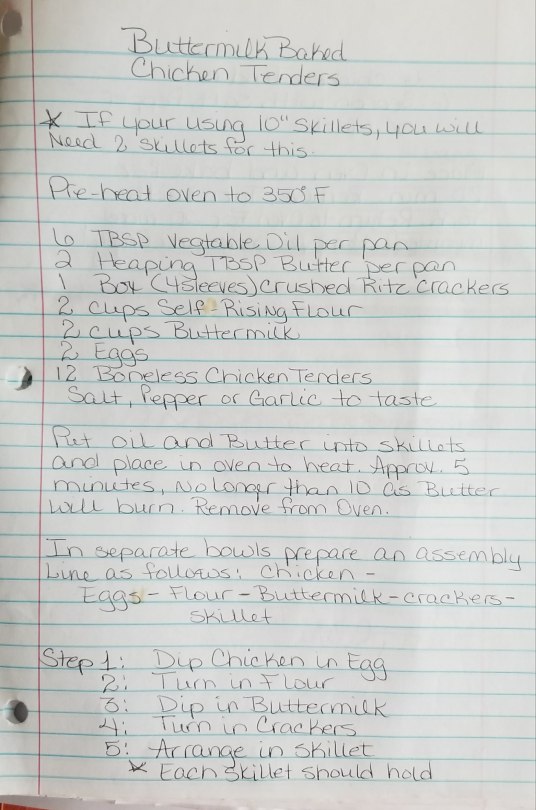 Buttermilk Baked
Chicken Tenders
* If your using 10" skillets, you will
Need 2 skillets for this.
Pre-heat oven to 350°F
6 TBSP vegtable Oil per pan
2 Heaping TBSP Butter per pan
1 Box (4 sleeves) crushed Ritz crackers
2 cups Self-Rising Flour
2 cups Buttermilk
2 Eggs
12 Boneless Chicken Tenders
Salt, Pepper or Garlic to taste
Put oil and Butter into skillets
and place in oven to heat. Approx. 5
minutes, No longer than 10 as Butter
will burn. Remove from Oven.
In separate bowls prepare an assembly
Line as follows: Chicken -
Eggs - Flour - Buttermilk - crackers -
skillet
Step 1: Dip Chicken in Egg
2: Turn in Flour
3: Dip in Buttermilk
4: Turn in Crackers
5: Arrange in skillet
* Each skillet should hold